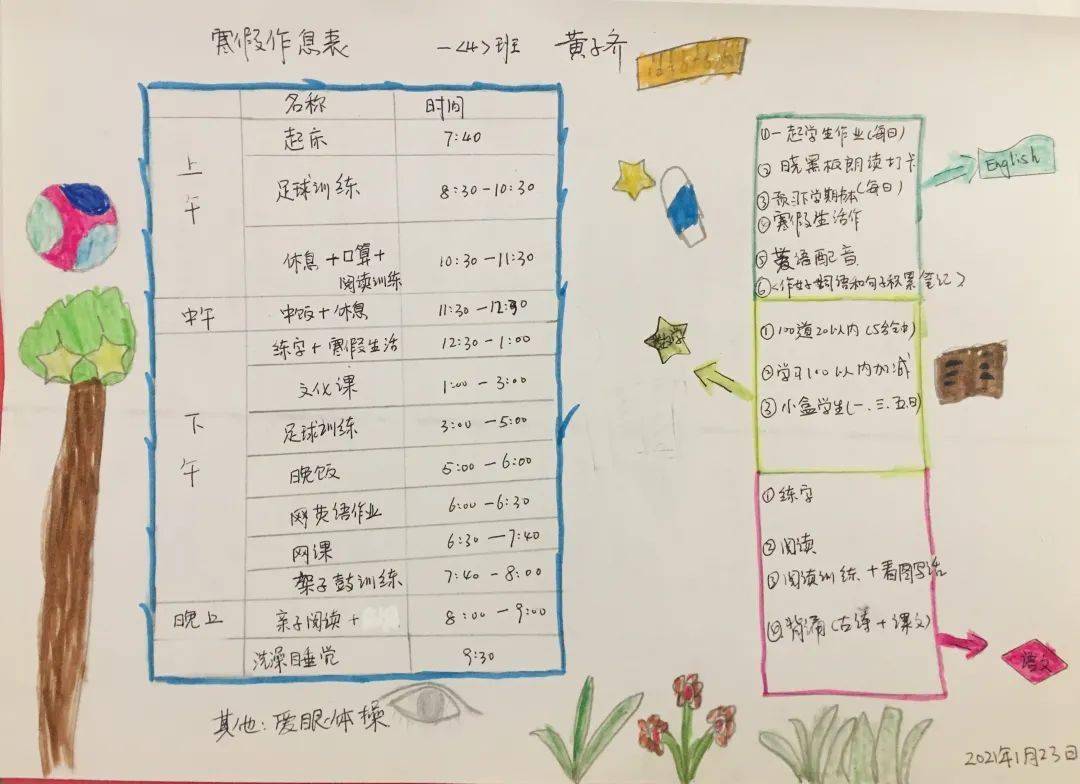 寒假作息表 一<4>班 黄子齐
名称 时间
上午
起床 7:40
足球训练 8:30-10:30
休息+口算+
阅读训练 10:30-11:30
中午 中饭+休息 11:30-12:30
下午
练字+寒假生活 12:30-1:00
文化课 1:00-3:00
足球训练 3:00-5:00
晚饭 5:00-6:00
网英语作业 6:00-6:30
网课 6:30-7:40
架子鼓训练 7:40-8:00
晚上 亲子阅读+ 8:00-9:00
洗澡睡觉 9:30
其他:爱眼体操
①一起学生作业(每日)
②晓黑板朗读打卡
③预习下学期(每日)
④寒假生活作
⑤英语配音
⑥<作好词语和句子积累笔记>
English
①100道20以内(5分钟)
②学习100以内加减
③小盒学生(一.三.五.日)
数学
①练字
②阅读
③阅读训练+看图写话
④背诵(古诗+课文)
语文
2021年1月23日